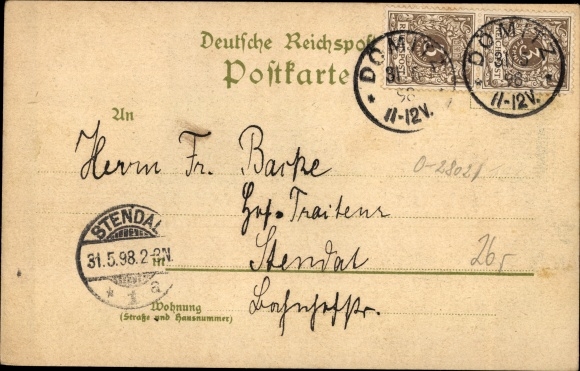 Deutsche Reichspost
Postkarte
REICHSPOST
3
REICHSPOST
3
DÖMITZ
31 5
98
11-12V.
DÖMITZ
31 5
98
11-12V.
An
Herrn Fr. Backe
Hof-Traiteur
Stendal
Bahnhofstr.
0-28021
26,
STENDAL
31.5.98.2-3N.
* 1 a
in
Wohnung
(Straße und Hausnummer)